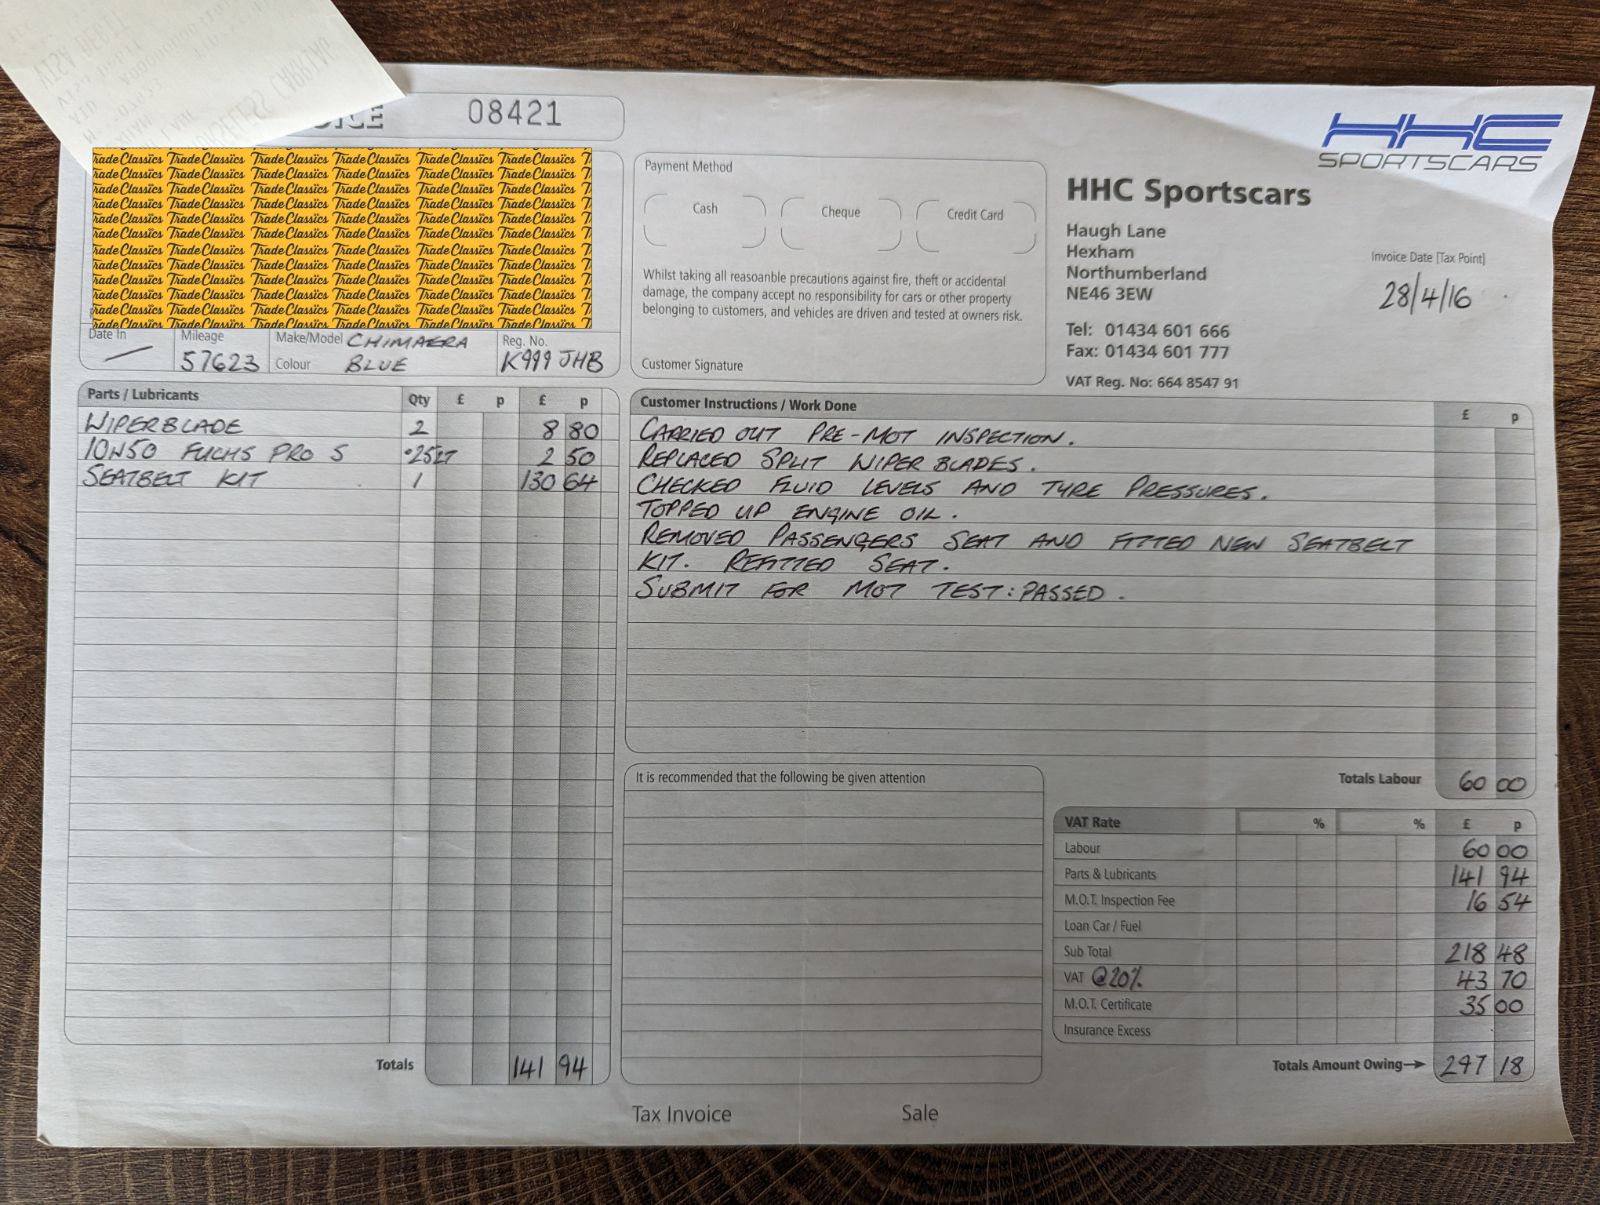 08421
HHC
SPORTSCARS
HHC Sportscars
Haugh Lane
Hexham
Northumberland
NE46 3EW
Tel: 01434 601 666
Fax: 01434 601 777
VAT Reg. No: 664 8547 91
Invoice Date [Tax Point]
28/4/16
Payment Method
Cash Cheque Credit Card
Whilst taking all reasoanble precautions against fire, theft or accidental
damage, the company accept no responsibility for cars or other property
belonging to customers, and vehicles are driven and tested at owners risk.
Customer Signature
Trade Classics
Date In Mileage Make/Model CHIMAERA Reg. No.
57623 Colour BLUE K999 JHB
Parts / Lubricants Qty £ p £ p
WIPERBLADE 2 8 80
10W50 FUCHS PRO S .25LT 2 50
SEATBELT KIT 1 130 64
Totals 141 94
Customer Instructions / Work Done £ p
CARRIED OUT PRE-MOT INSPECTION.
REPLACED SPLIT WIPER BLADES.
CHECKED FLUID LEVELS AND TYRE PRESSURES.
TOPPED UP ENGINE OIL.
REMOVED PASSENGERS SEAT AND FITTED NEW SEATBELT
KIT. REFITTED SEAT.
SUBMIT FOR MOT TEST: PASSED.
Totals Labour 60 00
It is recommended that the following be given attention
VAT Rate % % £ p
Labour 60 00
Parts & Lubricants 141 94
M.O.T. Inspection Fee 16 54
Loan Car / Fuel
Sub Total 218 48
VAT @20% 43 70
M.O.T. Certificate 35 00
Insurance Excess
Totals Amount Owing→ 297 18
Tax Invoice Sale